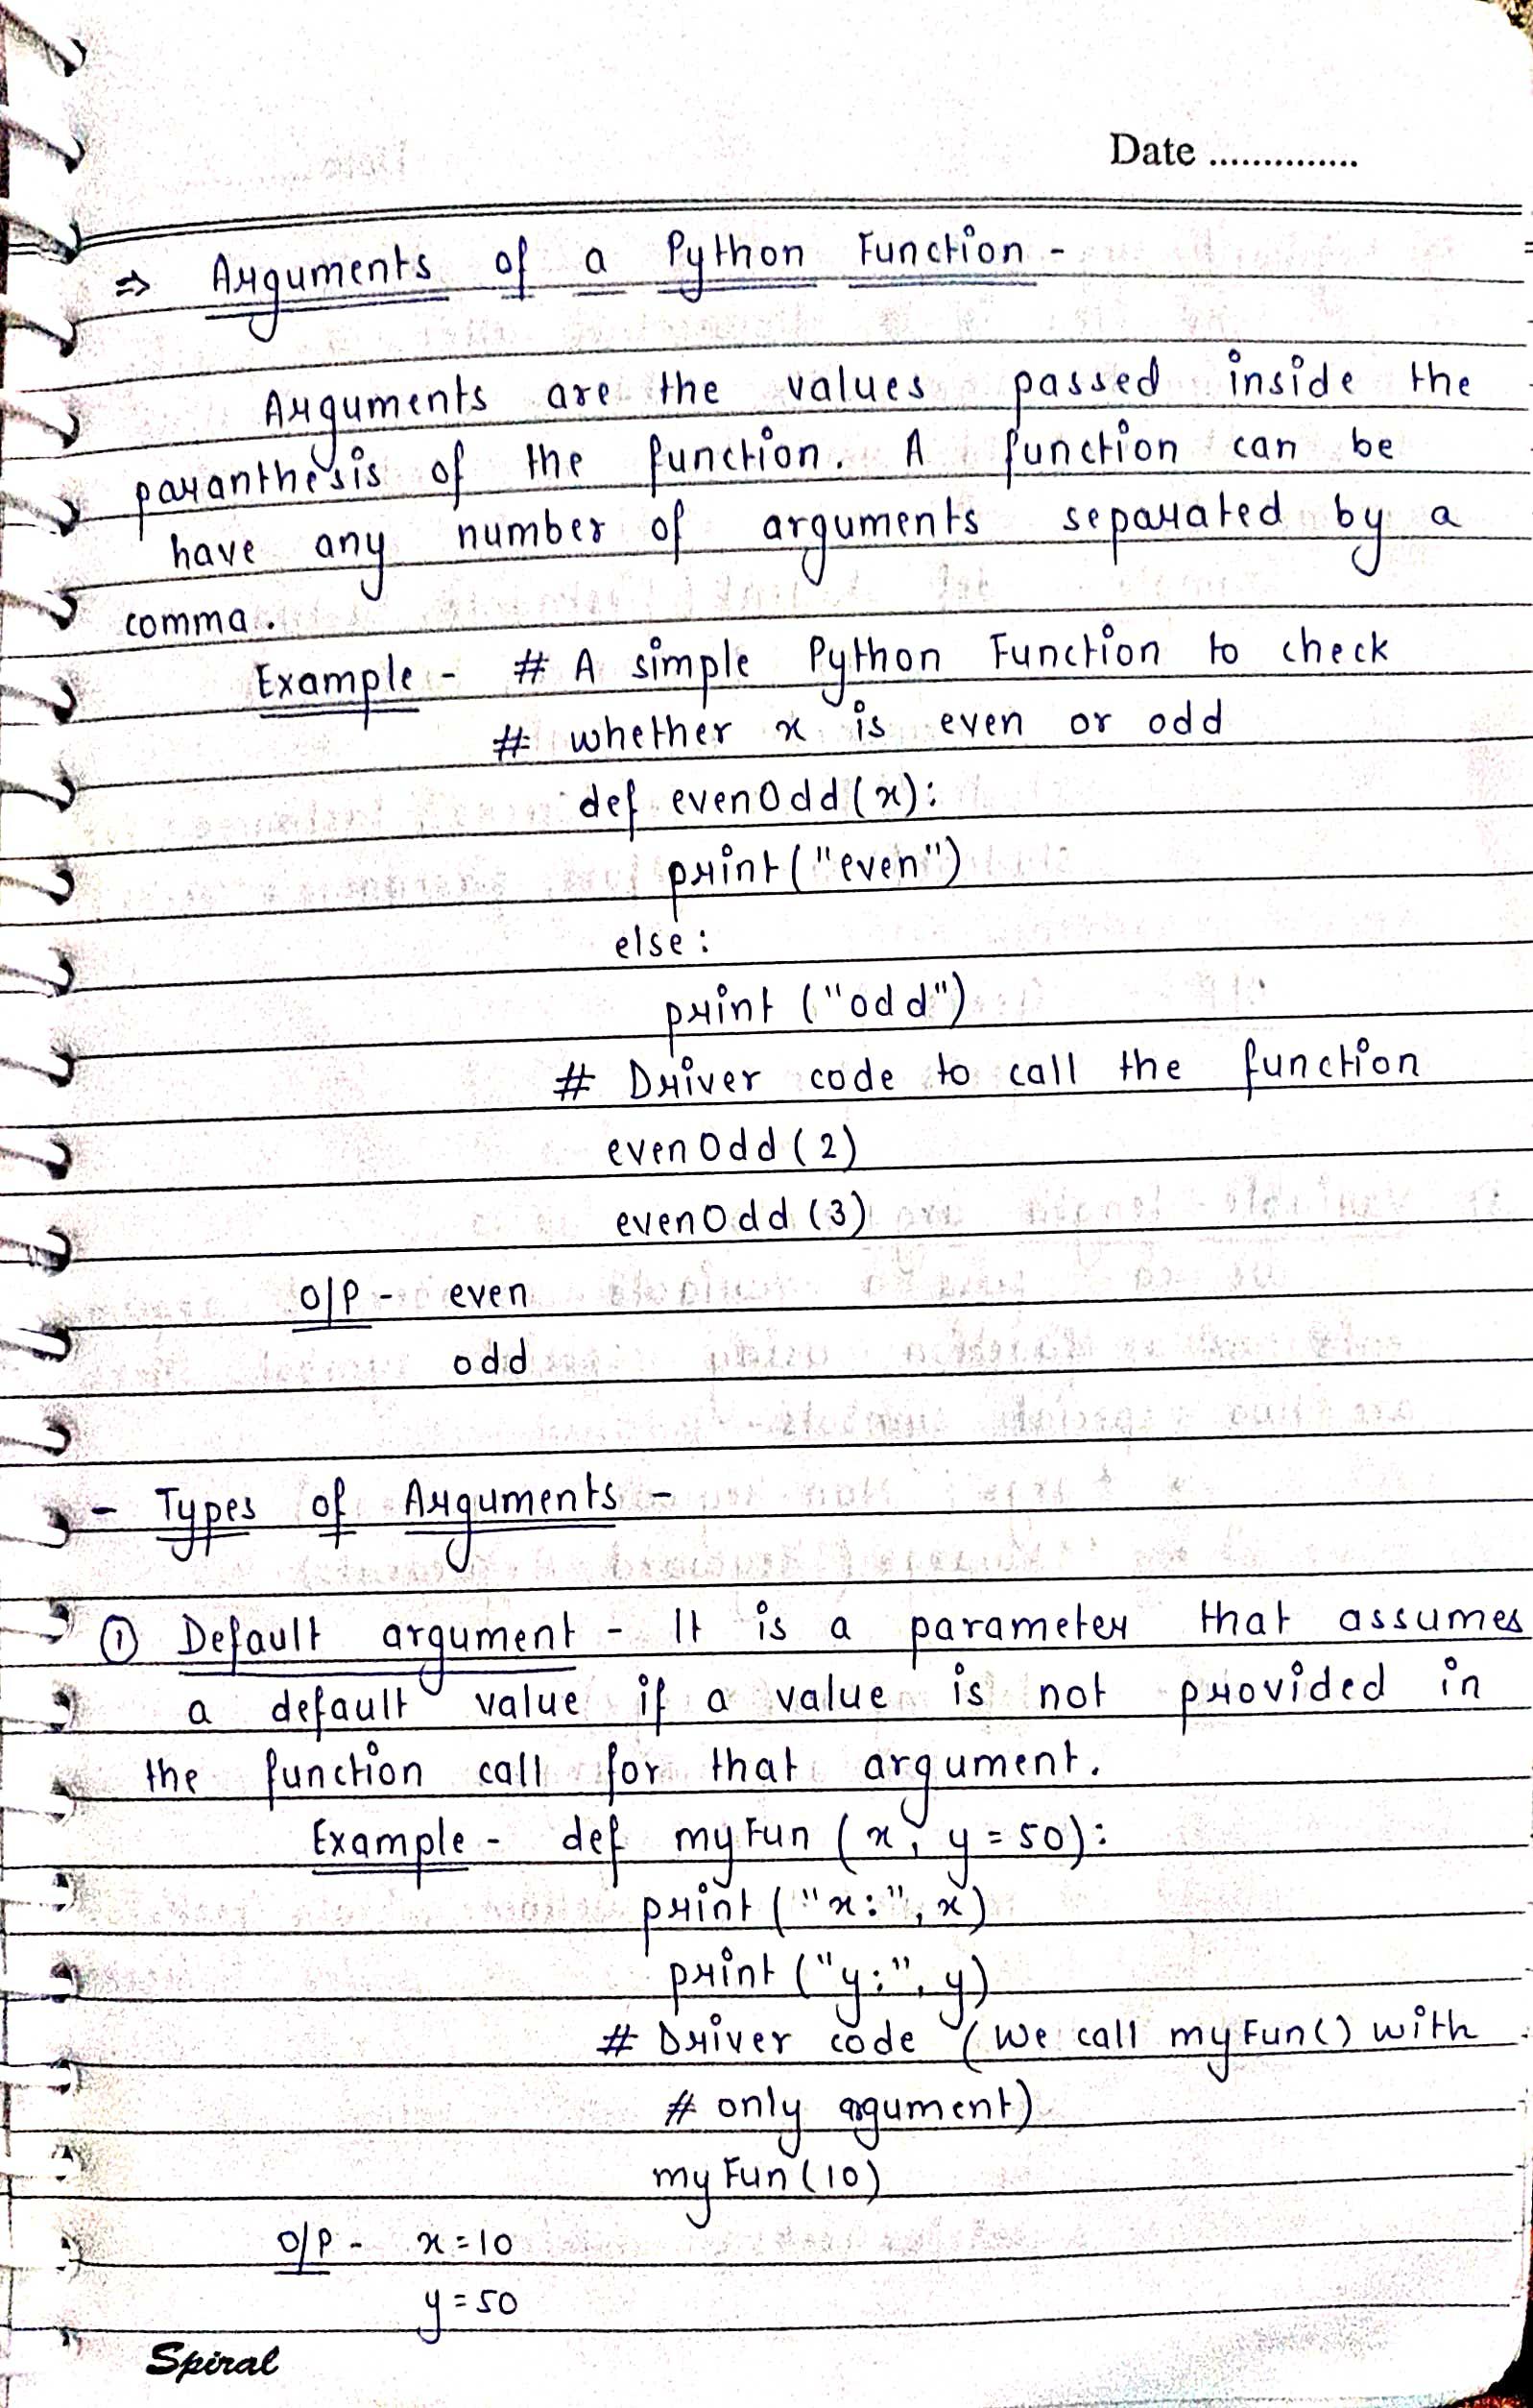 Date ...............
⇒ Arguments of a Python Function -
Arguments are the values passed inside the
paranthesis of the function. A function can be
have any number of arguments separated by a
comma.
Example - # A simple Python Function to check
# whether x is even or odd
def evenOdd(x):
print("even")
else:
print ("odd")
# Driver code to call the function
evenOdd (2)
evenOdd (3)
O/P - even
odd
- Types of Arguments -
① Default argument - It is a parameter that assumes
a default value if a value is not provided in
the function call for that argument.
Example - def myFun (x, y=50):
print ("x:", x)
print ("y:", y)
# Driver code (We call myFun() with
# only argument)
myFun(10)
O/P - x=10
y=50
Spiral